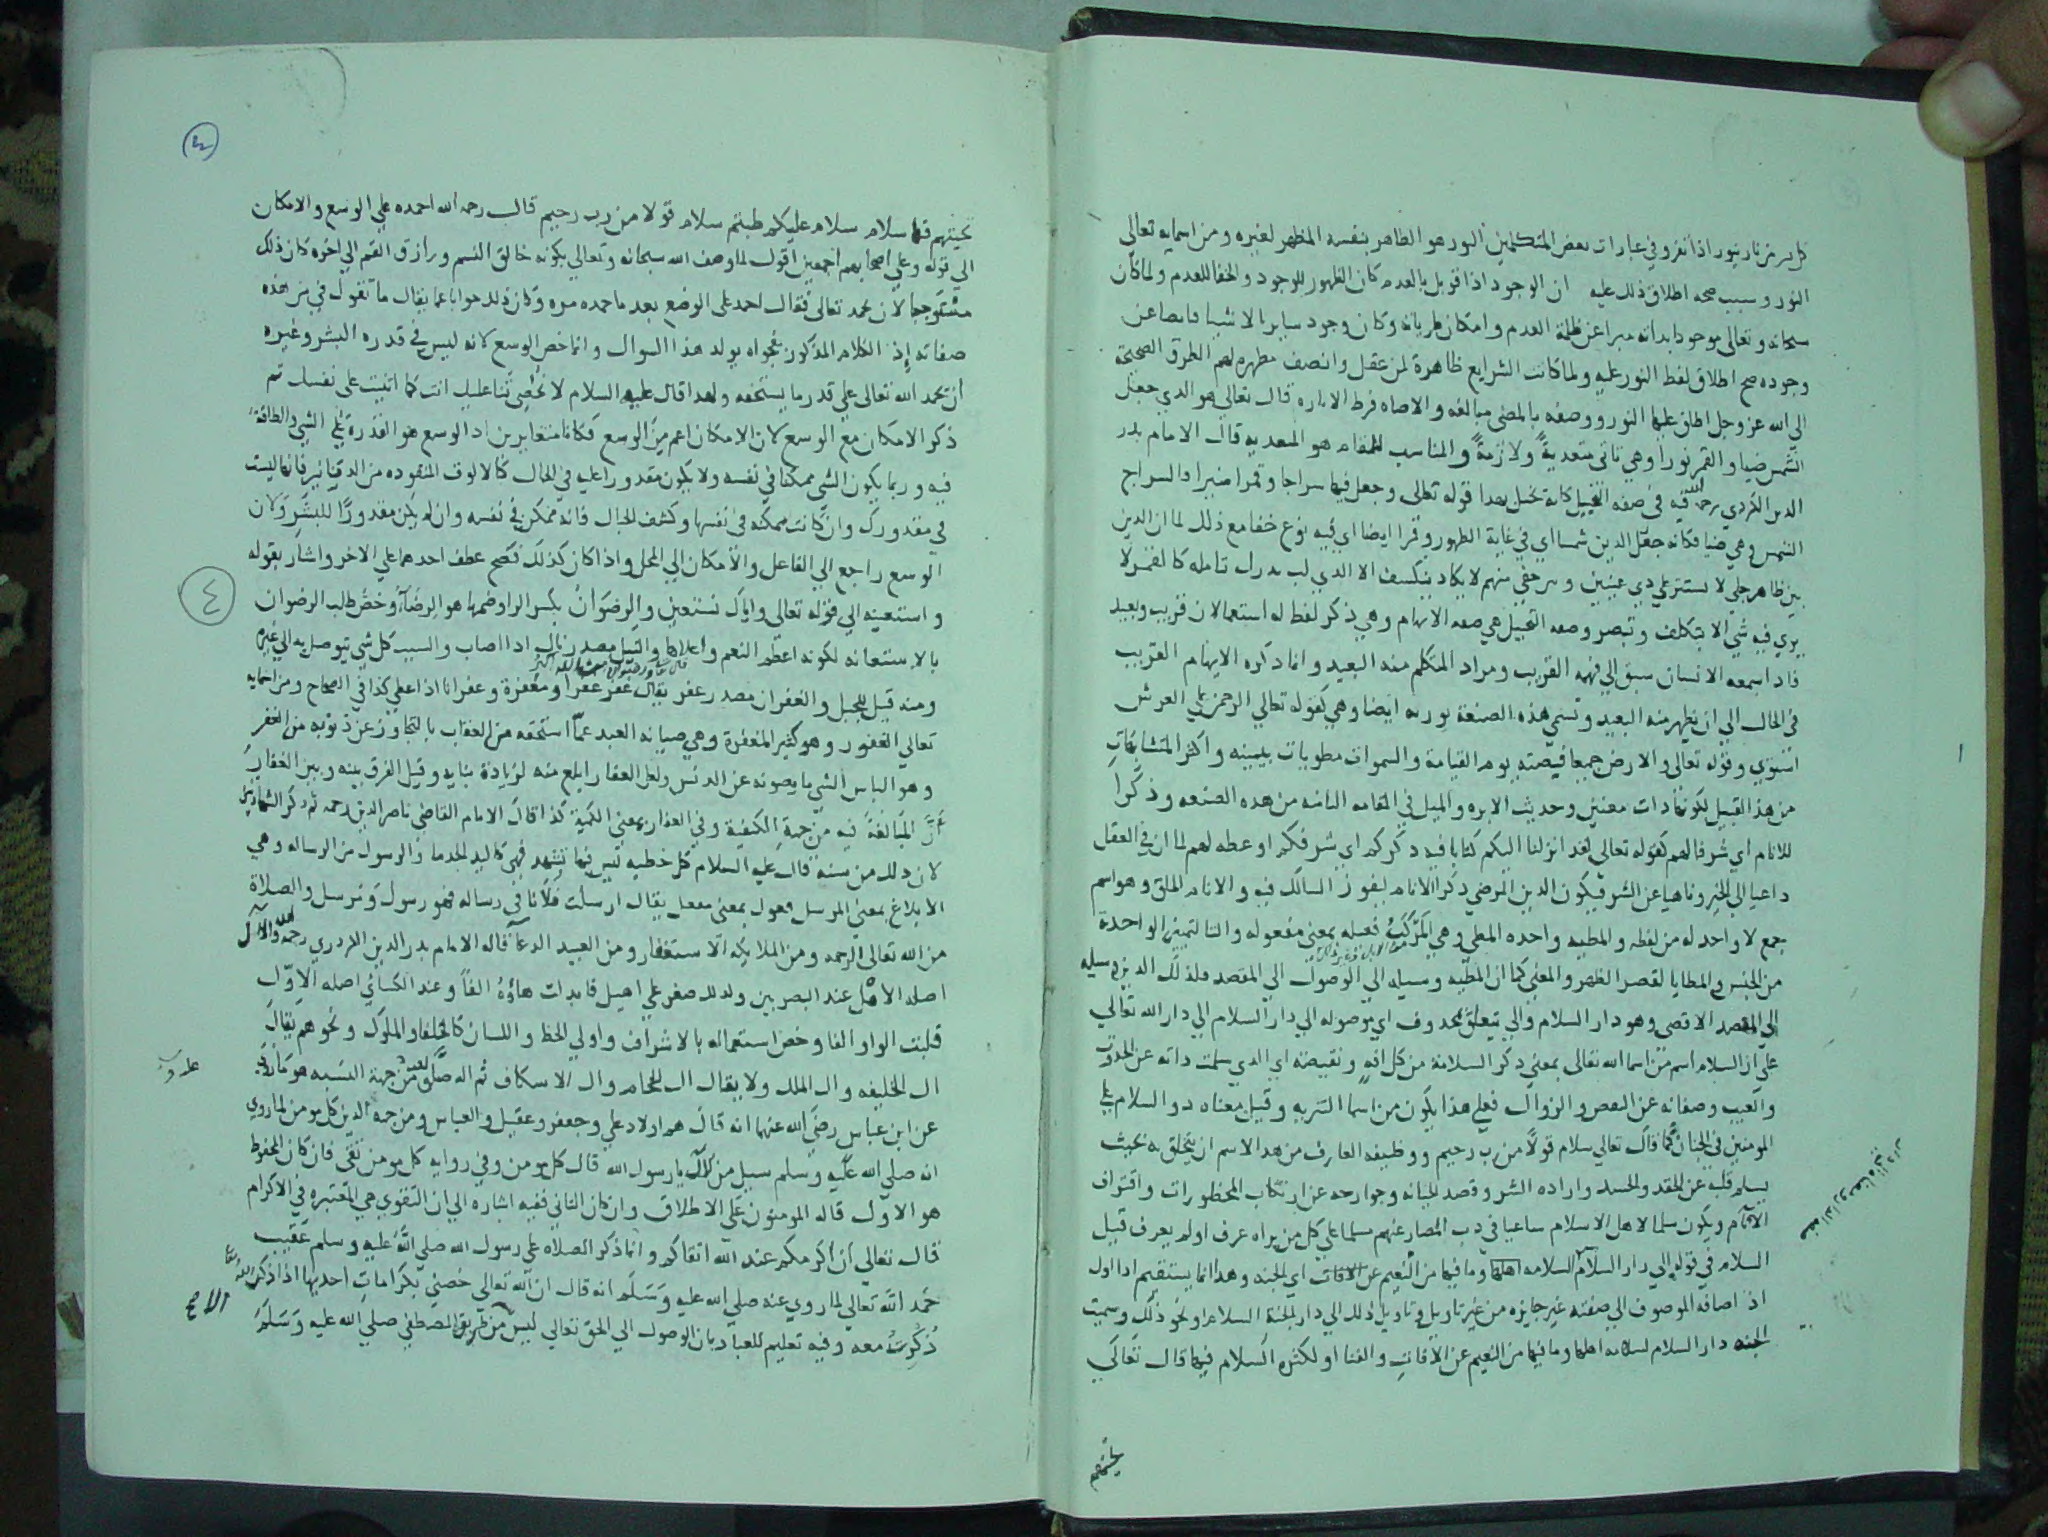 كل من نار بنور اذا نفر وفي عبارات بعض المتكلمين النور هو الظاهر بنفسه المظهر لغيره ومن اسمايه تعالي
النور وسبب صحه اطلاق ذلك عليه ان الوجود اذا قوبل بالعدم كان الظهور للوجود والخفا للعدم ولما كان
سبحانه وتعالى موجودا بذاته مبرا عن ظلمة العدم وامكان طريانه وكان وجود ساير الاشيا فايضا عن
وجوده صح اطلاق لفظ النور عليه ولما كانت الشرايع ظاهرة لمن عقل وانصف مظهره لهم الطرق الصحيحة
الي الله عز وجل اطلق عليها النور ووصفه بالمضي مبالغه والاضاه فرط الاناره قال تعالي هو الذي جعل
الشمس ضيا والقمر نورا وهي تاتي متعدية ولازمة والمناسب للمقام هو المتعديه قال الامام بدر
الدين الكردي رحمه الله فيه في صفه التخييل كانه تخيل بهذا قوله تعالى وجعل فيها سراجا وقمرا منيرا والسراج
الشمس وهي ضيا فكانه جعل الدين شمسا اي في غاية الظهور وقمرا ايضا اي فيه نوع خفا مع ذلك لما ان الدين
بين ظاهر جلي لا يستتر علي ذي عينين وسر خفي منهم لا يكاد ينكسف الا الذي لب يدرك تامله كالقمر لا
يري فيه شي الا بتكلف وتبصر وصفه التخييل هي صفه الايهام وهي ذكر لفظ له استعمالان قريب وبعيد
فاذا سمعه الانسان سبق الي فهمه القريب ومراد المتكلم منه البعيد وانما ذكره الايهام القريب
في الحال الي ان يظهر منه البعيد وتسمي هذه الصنعة توريه ايضا وهي كقوله تعالي الرحمن على العرش
استوي وقوله تعالى والارض جميعا قبضته يوم القيامة والسموات مطويات بيمينه واكثر المتشابهات
من هذا القبيل لكونها ذات معنيين وحديث الابره والميل في المقامه الثامنه من هذه الصنعه وذكرا
للانام اي شرفا لهم كقوله تعالي لقد انزلنا اليكم كتابا فيه ذكركم اي شرفكم او عظه لهم لما ان في العقل
داعيا الي الخير وناهيا عن الشر فيكون الدين المرضي ذكرا للانام ليفوز السالك فيه والانام الخلق وهو اسم
جمع لا واحد له من لفظه والمطيه واحده المطي وهي المركب فعيله بمعني مفعوله والتا لتمييز الواحدة
من الجنس والمطايا لقصر الظهر والمعني كما ان المطيه وسيله الي الوصول الي المقصد فلذلك الدين وسيله
الي المقصد الاقصى وهو دار السلام والي يتعلق بمحذوف اي موصوله الي دار السلام الي دار الله تعالي
على ان السلام اسم من اسما الله تعالى بمعني ذكر السلامة من كل افه ونقيصه اي الذي سلمت ذاته عن الحدوث
والعيب وصفاته عن النقص والزوال فعلي هذا يكون من اسما التنزيه وقيل معناه ذو السلام علي
المومنين في الجنان كما قال تعالي سلام قولا من رب رحيم ووظيفه العارف من هذا الاسم ان يتخلق به بحيث
يسلم قلبه عن الحقد والحسد واراده الشر وقصد الخيانه وجوارحه عن ارتكاب المحظورات واقتراف
الاثام ويكون سلما لاهل الاسلام ساعيا في ذب المضار عنهم مسلما علي كل من يراه عرف او لم يعرف قيل
السلام في قوله الي دار السلام السلامه اهلها وما فيها من النعيم عن الافات اي الجنه وهذا انما يستقيم اذا اول
اذ اضافه الموصوف الي صفته غير جايزه من غير تاويل وتاويل ذلك الي دار الجنة السلام او نحو ذلك وسميت
الجنه دار السلام لسلامه اهلها وما فيها من النعيم عن الافات والفنا او لكثره السلام فيها قال تعالي
تحيتهم
تحيتهم فيها سلام سلام عليكم طبتم سلام قولا من رب رحيم قال رحمه الله احمده علي الوسع والامكان
الي قوله وعلي اصحابهم اجمعين اقول لما وصف الله سبحانه وتعالي بكونه خالق النسم ورازق القسم الي اخره كان ذلك
مستوجبا لان يحمد تعالى فقال احمده على الوضع بعد ما حمده مره وكان ذلك جوابا عما يقال ما تقول في من هذه
صفاته اذ الكلام المذكور بفحواه يولد هذا السوال وانما خص الوسع لانه ليس في قدره البشر وغيره
ان يحمد الله تعالى علي قدر ما يستحقه ولهذا قال عليه السلام لا نحصي ثنا عليك انت كما اثنيت على نفسك ثم
ذكر الامكان مع الوسع لان الامكان اعم من الوسع فكانا متغايرين اذ الوسع هو القدرة علي الشي والطاقة
فيه وربما يكون الشي ممكنا في نفسه ولا يكون مقدورا عليه في الحال كالالوف المنقوده من الدنانير فانها ليست
في مقدورك وان كانت ممكنه في نفسها وكشف الجبال فانه ممكن في نفسه وان لم يكن مقدورا للبشر ولان
الوسع راجع الي الفاعل والامكان الي المحل واذا كان كذلك فصح عطف احدهما علي الاخر واشار بقوله
واستعينه الي قوله تعالى واياك نستعين والرضوان بكسر الرا وضمها هو الرضآ وخص طلب الرضوان
بالاستعانه لكونه اعظم النعم واعلاها والنيل مصدر نال اذا اصاب والسبب كل شي يتوصل به الي غيره
قال تعالى ورضوان من الله اكبر
ومنه قيل للحبل والغفران مصدر غفر يقال غفر غفرا ومغفرة وغفرانا اذا غطي كذا في الصحاح ومن اسمايه
تعالي الغفور وهو كثير المغفرة وهي صيانه العبد عما استحقه من العقاب بالتجاوز عن ذنوبه من الغفر
وهو الباس الشي ما يصونه عن الدنس ولعل الغفار ابلغ منه لزيادة بنايه وقيل الفرق بينه وبين الغفار
ان المبالغة فيه من جهة الكيفية وفي الغفار بمعني الكمية كذا قال الامام القاضي ناصر الدين رحمه ثم ذكر الشهادتين
لان ذلك من سنة قال عليه السلام كل خطبه ليس فيها تشهد فهي كاليد الجذما والرسول من الرساله وهي
الابلاغ بمعني المرسل فعول بمعني مفعل يقال ارسلت فلانا في رساله فهو رسول ومرسل والصلاة
من الله تعالى الرحمه ومن الملايكه الاستغفار ومن العبيد الدعا قاله الامام بدر الدين الكردري رحمه الله والآل
اصله الاهل عند البصريين ولذلك صغر علي اهيل فابدلت هاؤه الفا وعند الكسائي اصله الاول
قلبت الواو الفا وخص استعماله بالاشراف واولي الخطر واللسان كالخلفا والملوك ونحوهم يقال
ال الخليفه وال الملك ولا يقال ال الحجام وال الاسكاف ثم اله صلى من جهة النسبه هو ما روي
عن ابن عباس رضي الله عنهما انه قال هم اولاد علي وجعفر وعقيل والعباس ومن جهه الدين كل مومن لما روي
انه صلى الله عليه وسلم سيل من آلك يا رسول الله قال كل مومن وفي روايه كل مومن تقي فان كان المحفوظ
هو الاول قاله المومنون علي الاطلاق وان كان الثاني ففيه اشاره الي ان التقوي هي المعتبره في الاكرام
قال تعالي ان اكرمكم عند الله اتقاكم وانما ذكر الصلاه على رسول الله صلى الله عليه وسلم عقيب
حمد الله تعالي لما روي عنه صلي الله عليه وسلم انه قال ان الله تعالي خصني بكرامات احديها اذا ذكر الله
ذكرت معه وفيه تعليم للعباد بان الوصول الي الحق تعالي ليس من طريق المصطفي صلي الله عليه وسلم
الا
٤